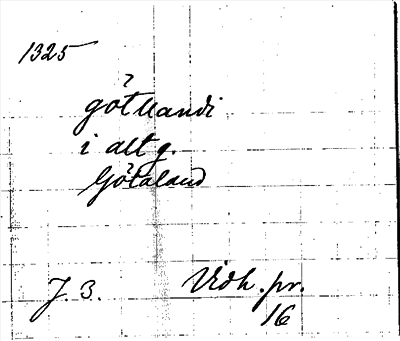 1325
götllandi
i alt g.
Götaland
J. 3. Vidh. pr.
16